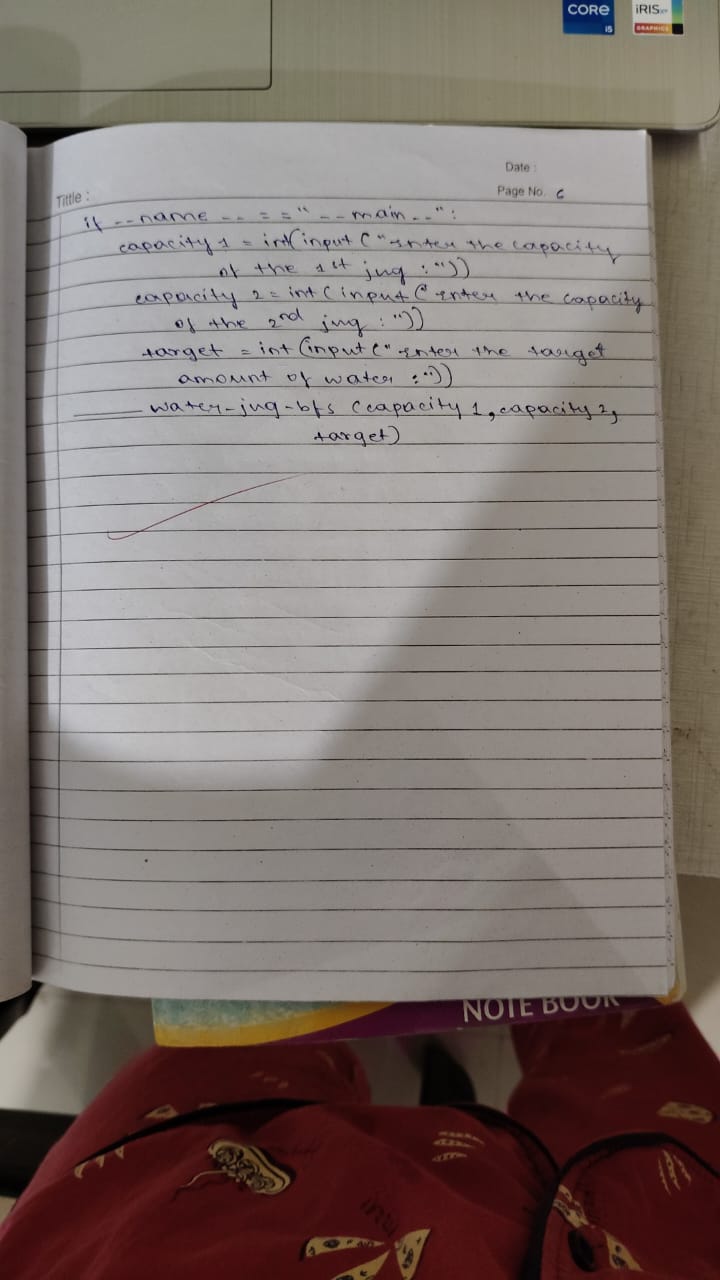 CORE
i5
iRIS xe
GRAPHICS
Date :
Page No. 6
Tittle :
if __name__ == "__main__":
capacity 1 = int(input ("Enter the capacity
of the 1st jug : "))
capacity 2 = int (input ("Enter the capacity
of the 2nd jug : "))
target = int (input ("Enter the target
amount of water : "))
water-jug-bfs (capacity 1, capacity 2,
target)
NOTE BOOK